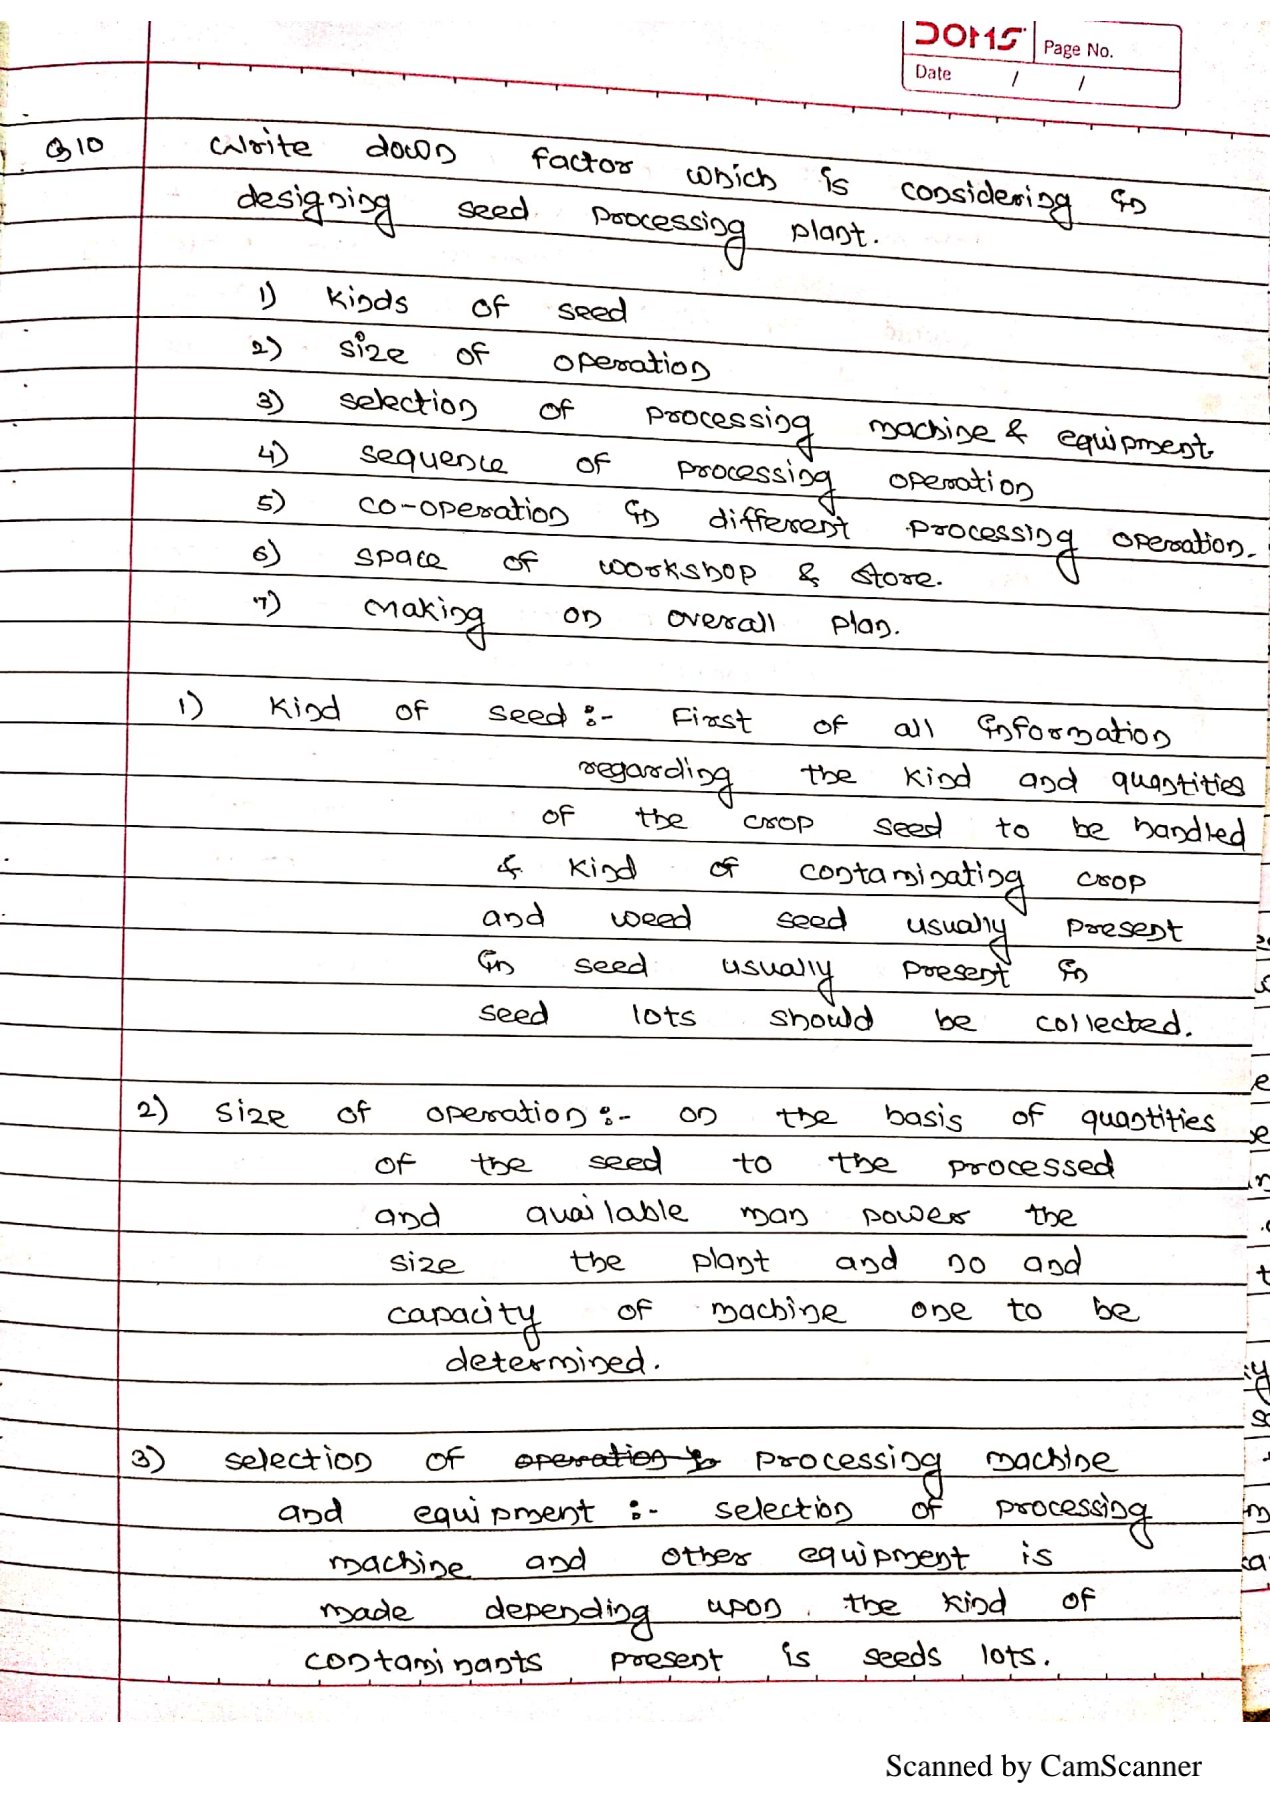 DOMS Page No.
Date / /
Q10 Write down factor which is considering in
designing seed processing plant.
1) Kinds of seed
2) size of operation
3) selection of processing machine & equipment.
4) sequence of processing operation
5) co-operation in different processing operation.
6) space of workshop & store.
7) Making on overall plan.
1) Kind of seed :- First of all information
regarding the kind and quantities
of the crop seed to be handled
& kind of contaminating crop
and weed seed usually present
in seed usually present in
seed lots should be collected.
2) size of operation :- on the basis of quantities
of the seed to the processed
and available man power the
size the plant and no and
capacity of machine one to be
determined.
3) selection of processing machine
and equipment :- selection of processing
machine and other equipment is
made depending upon the kind of
contaminants present is seeds lots.
Scanned by CamScanner